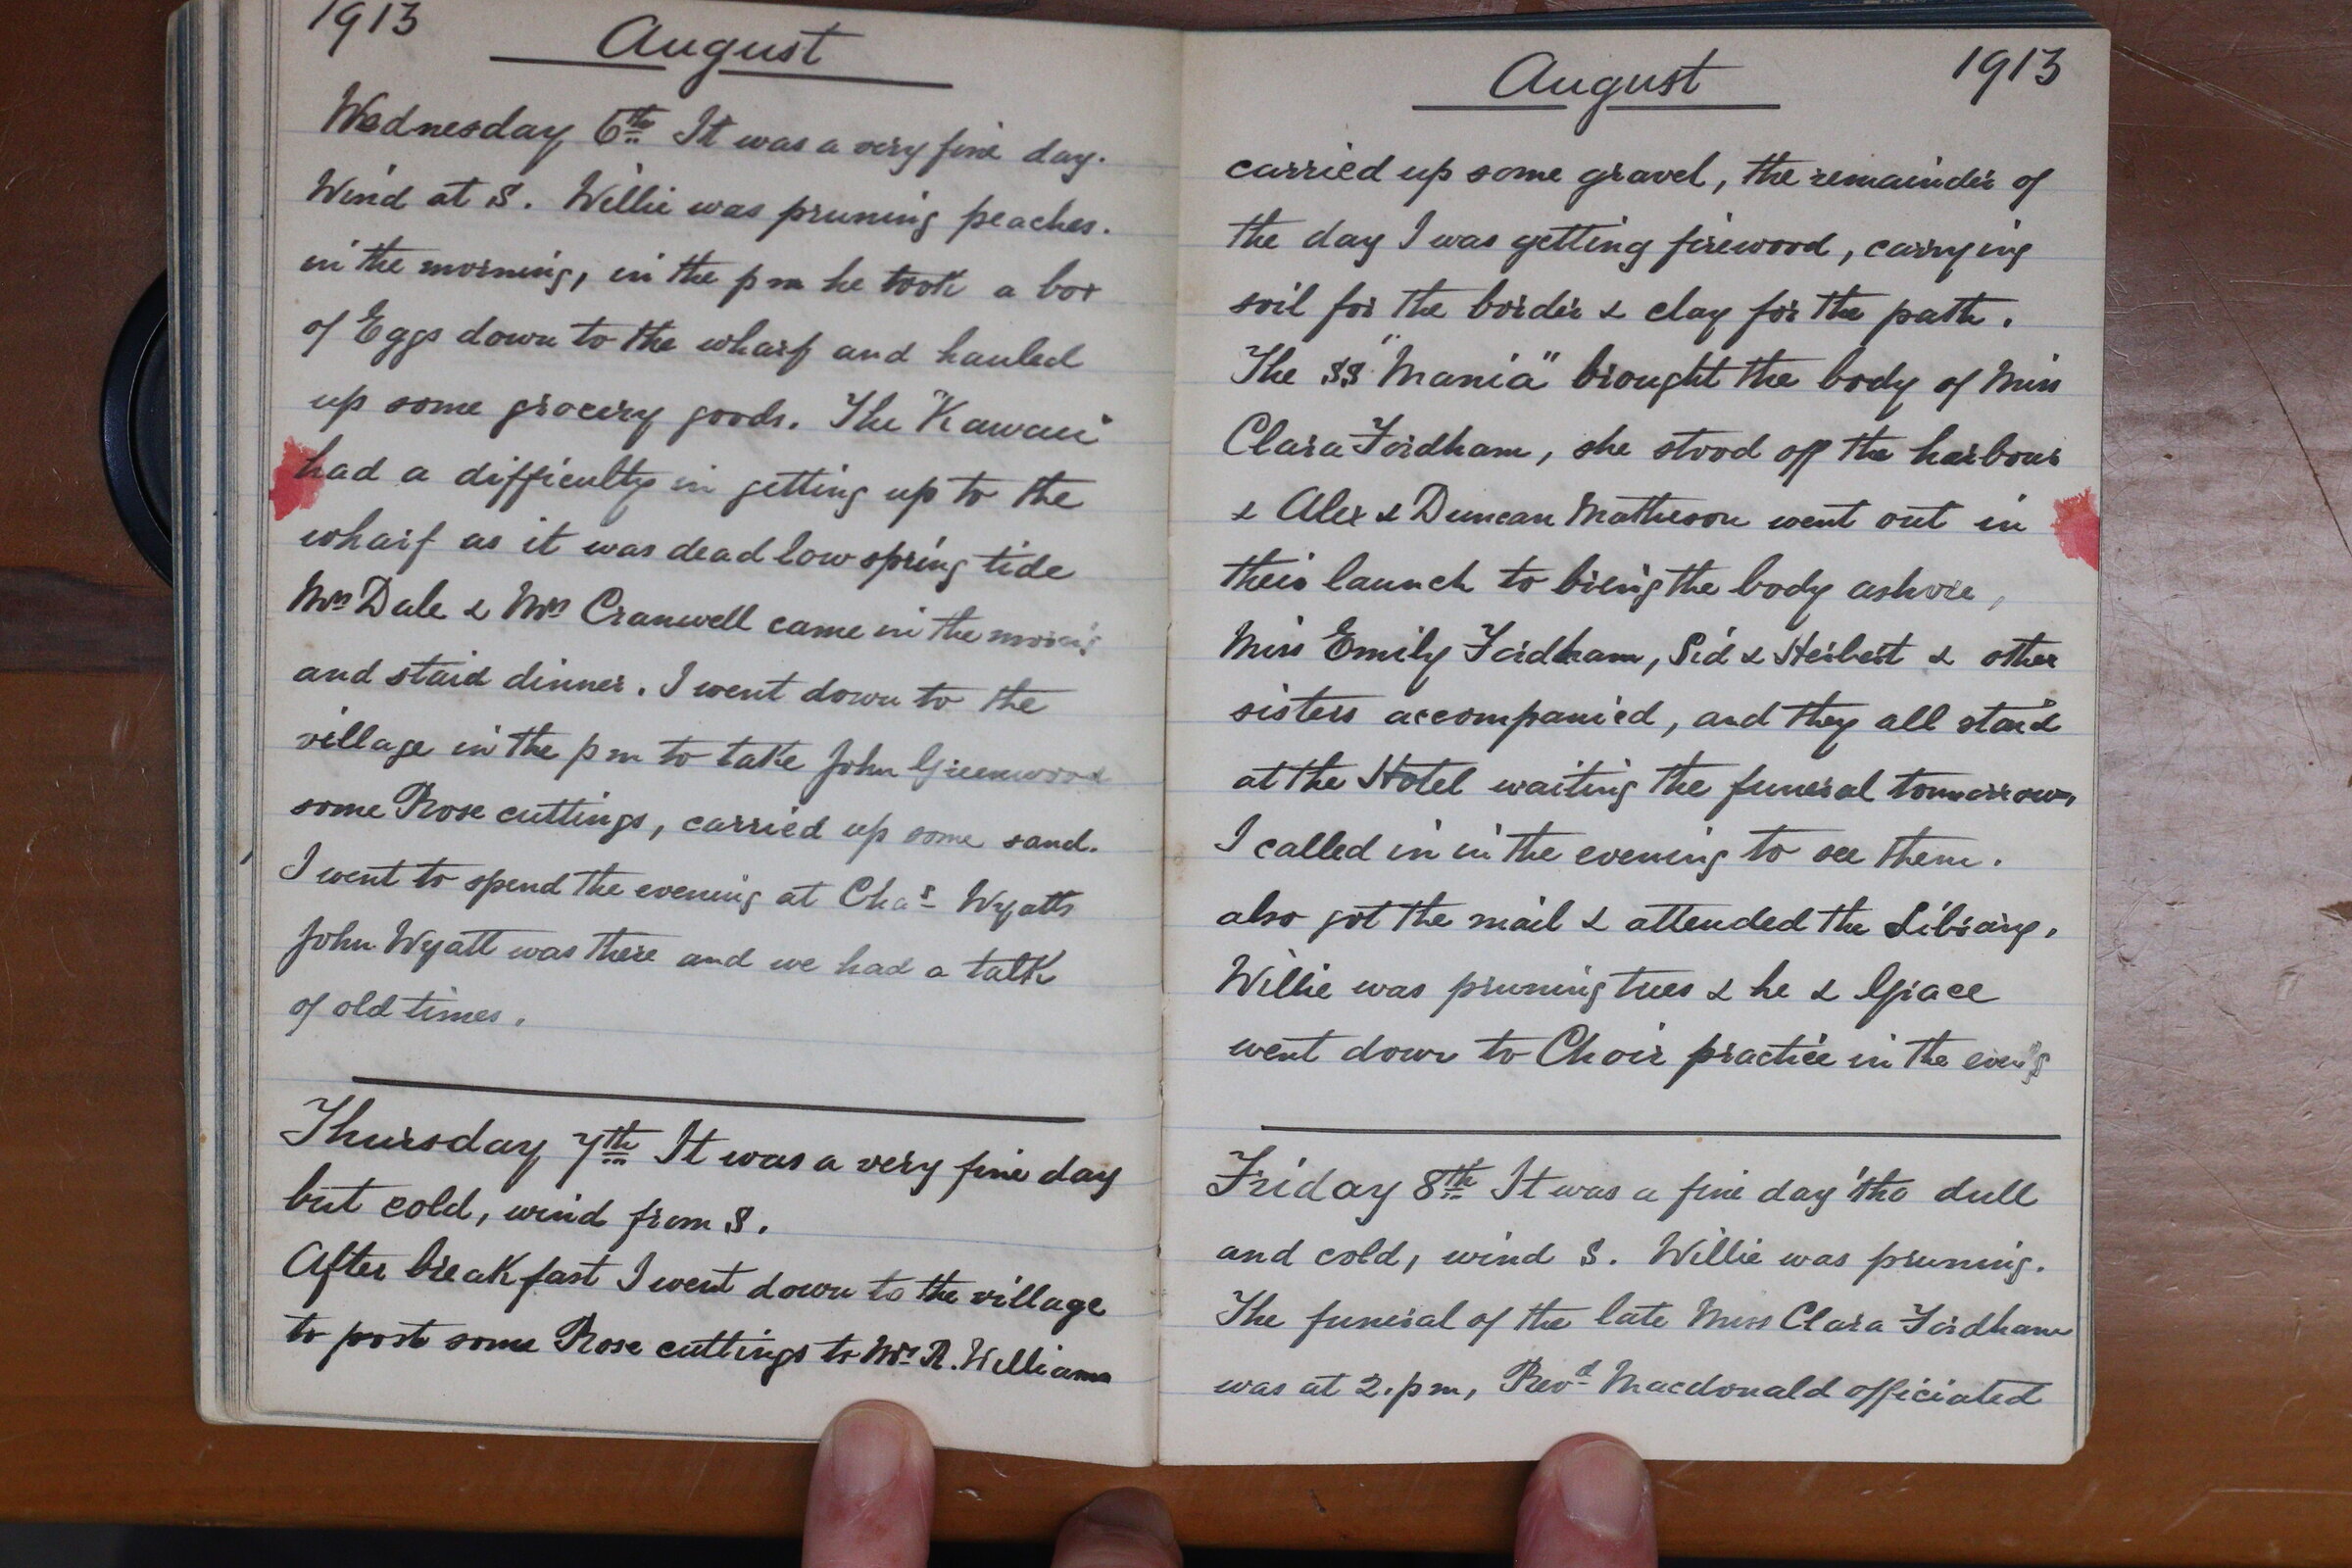 1913
August
Wednesday 6th It was a very fine day.
Wind at S. Willie was pruning peaches.
in the morning, in the pm he took a box
of Eggs down to the wharf and hauled
up some grocery goods. The "Kawau"
had a difficulty in getting up to the
wharf as it was dead low spring tide
Mrs Dale & Mrs Cranwell came in the morn'g
and staid dinner. I went down to the
village in the pm to take John Greenwood
some Rose cuttings, carried up some sand.
I went to spend the evening at Chas Wyatts
John Wyatt was there and we had a talk
of old times.
Thursday 7th It was a very fine day
but cold, wind from S.
After breakfast I went down to the village
to post some Rose cuttings to R. Williams
August 1913
carried up some gravel, the remainder of
the day I was getting firewood, carrying
soil for the border & clay for the path.
The SS "Mania" brought the body of Miss
Clara Fordham, she stood off the harbour
& Alex & Duncan Matheson went out in
their launch to bring the body ashore,
Miss Emily Fordham, Sid & Herbert & other
sisters accompanied, and they all staid
at the Hotel waiting the funeral tomorrow,
I called in in the evening to see them.
also got the mail & attended the Library.
Willie was pruning trees & he & Grace
went down to Choir practice in the even'g
Friday 8th It was a fine day 'tho dull
and cold, wind S. Willie was pruning.
The funeral of the late Miss Clara Fordham
was at 2.pm, Revd Macdonald officiated